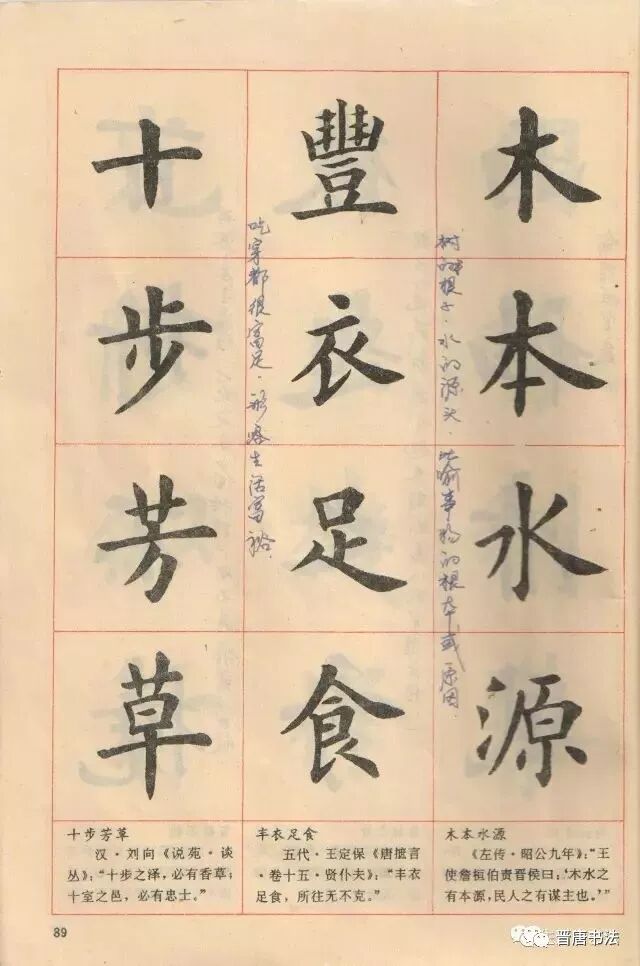 木本水源
树的根子·水的源头·比喻事物的根本或原因
豐衣足食
吃穿都很富足·形容生活富裕
十步芳草
十步芳草
汉·刘向《说苑·谈
丛》：“十步之泽，必有香草；
十室之邑，必有忠士。”
丰衣足食
五代·王定保《唐摭言
·卷十五·贤仆夫》：“丰衣
足食，所往无不克。”
木本水源
《左传·昭公九年》：“王
使詹桓伯责晋侯曰：‘木水之
有本源，民人之有谋主也。’”
89
晋唐书法